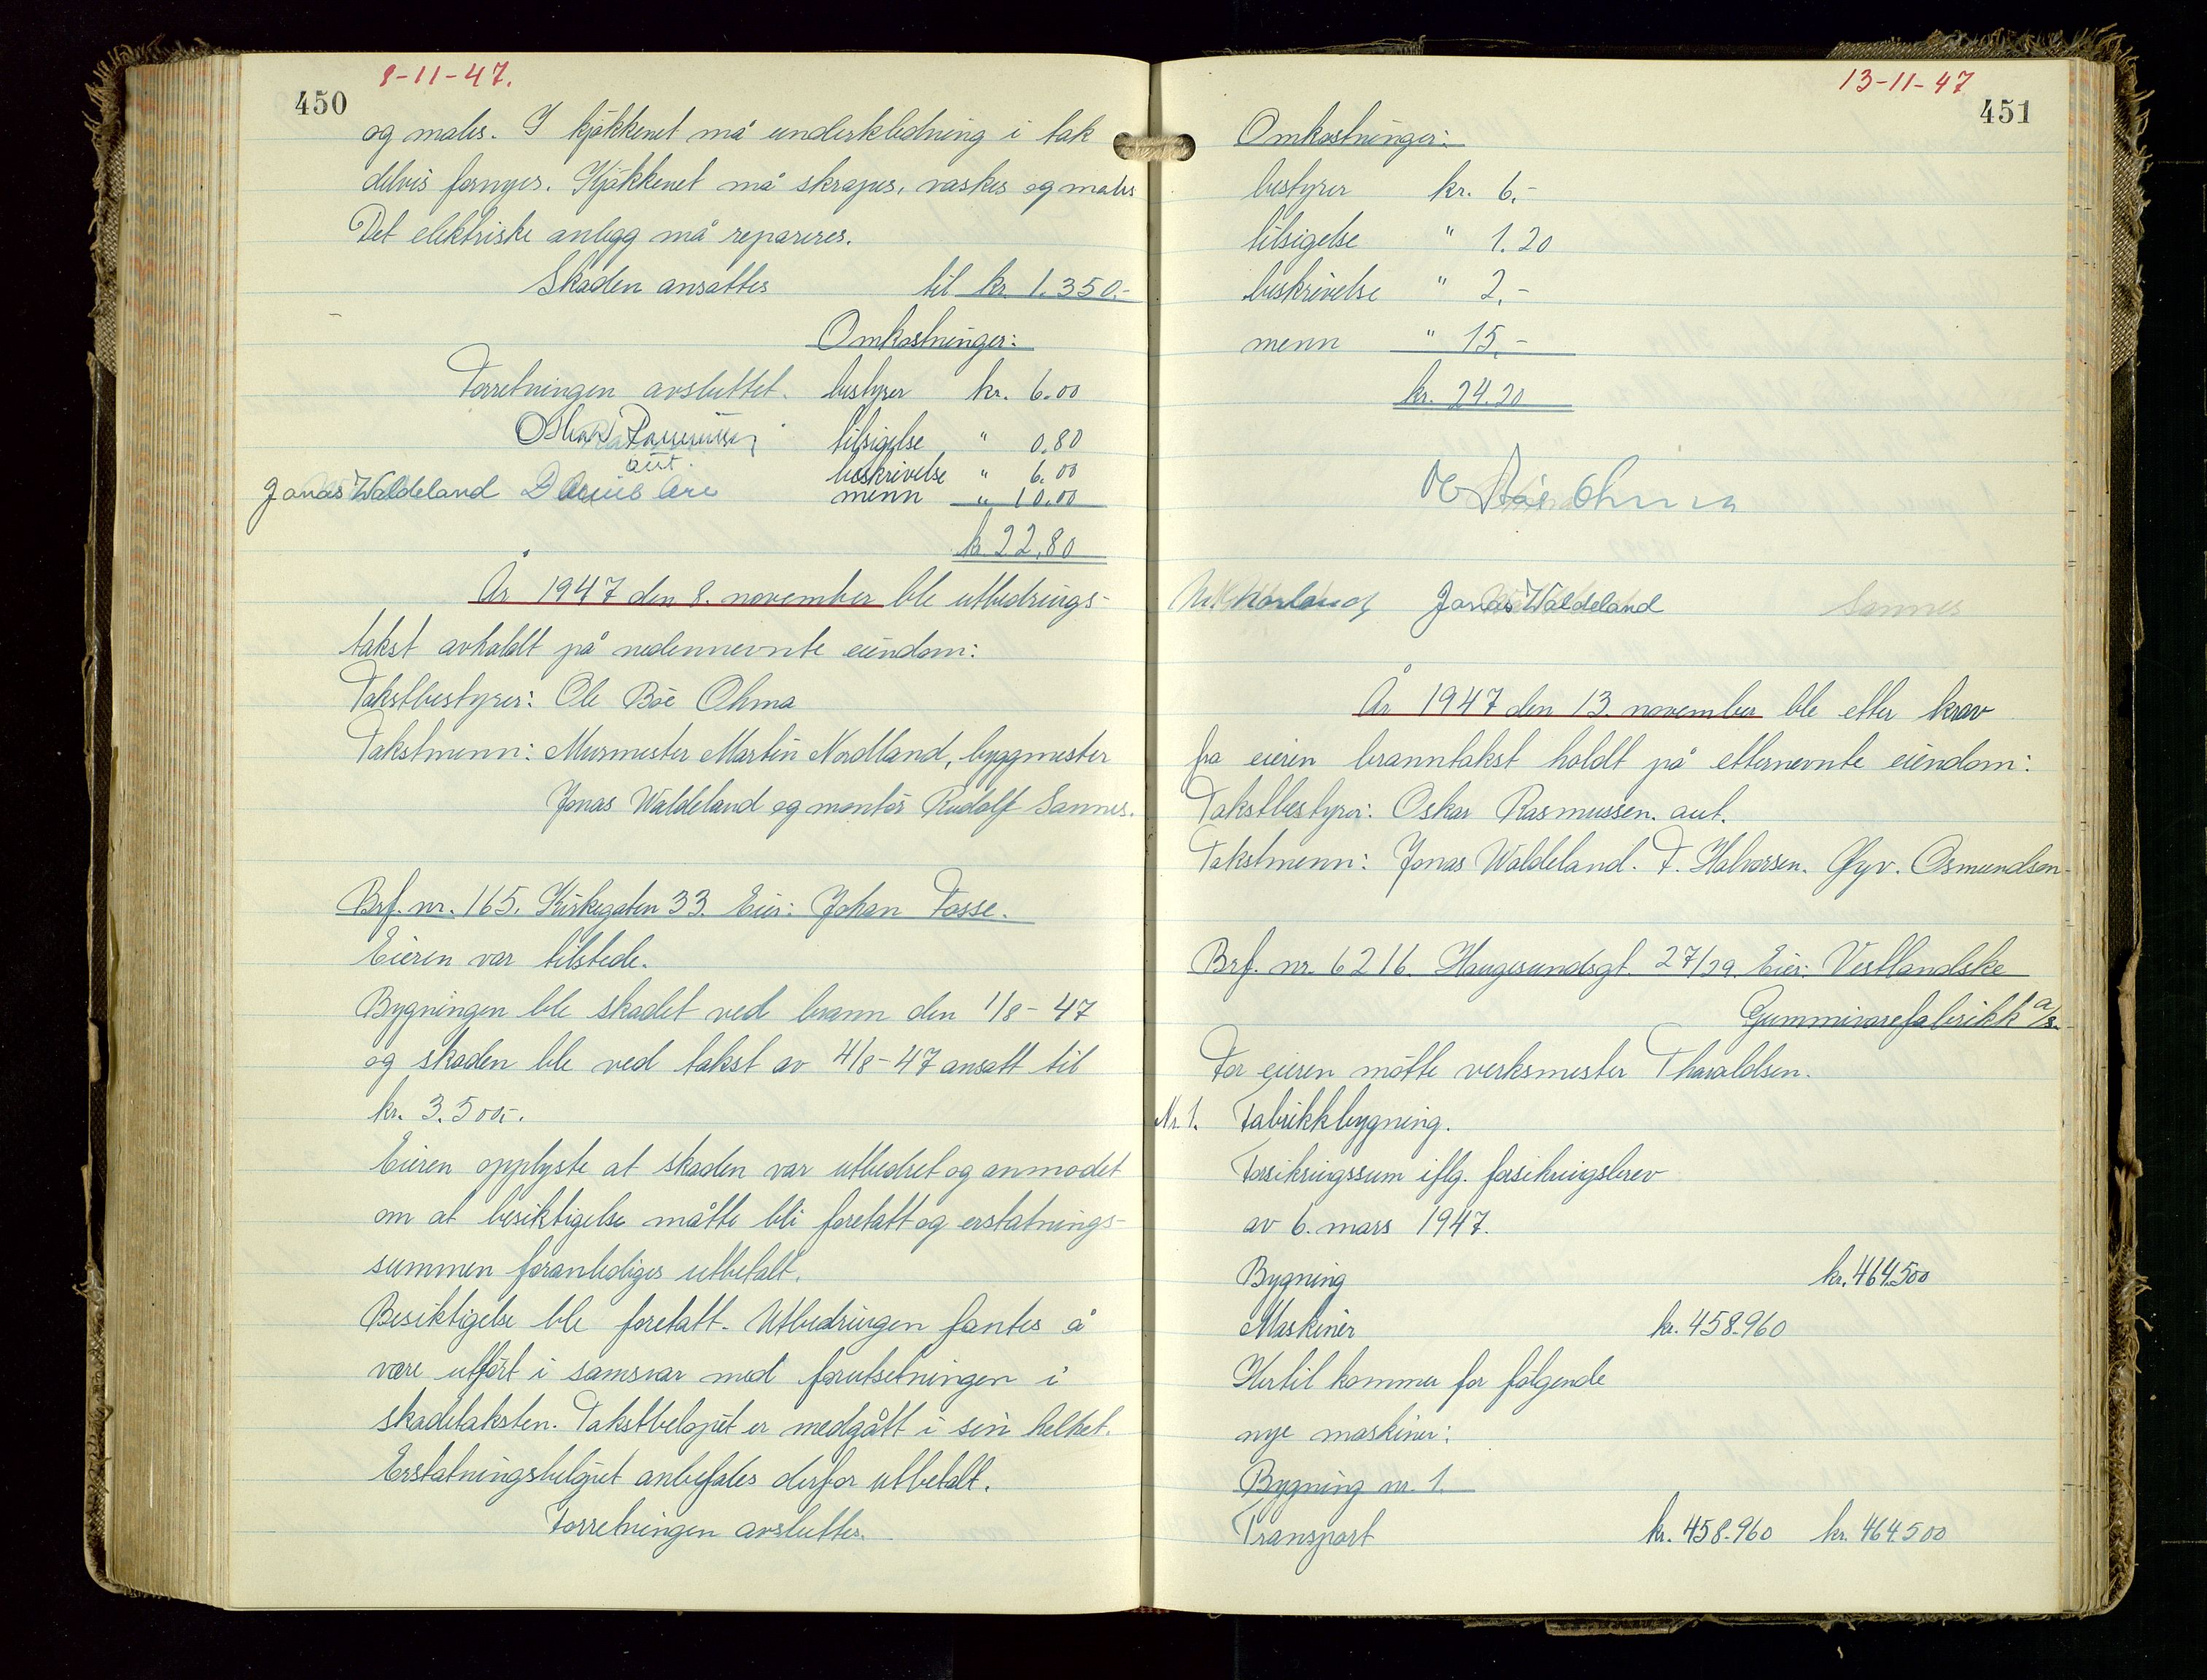 8-11-47.
450
og males. I kjøkkenet må underkledning i tak
delvis fornyes. Kjøkkenet må skrapes, vaskes og males
Det elektriske anlegg må repareres.
Skaden ansattes til kr. 1.350.-
Omkostninger:
Forretningen avsluttet. bestyrer kr. 6.00
Oskar Rasmussen tilsigelse " 0.80
aut. beskrivelse " 6.00
Jonas Waldeland menn " 10.00
kr. 22,80
År 1947 den 8. november ble utbedrings-
takst avholdt på nedennevnte eiendom:
Takstbestyrer: Ole Bøe Ohma
Takstmenn: Murmester Martin Nordland, byggmester
Jonas Waldeland og montør Rudolf Sannes.
Brf. nr. 165. Kirkegaten 33. Eier: Johan Fosse.
Eieren var tilstede.
Bygningen ble skadet ved brann den 1/8-47
og skaden ble ved takst av 4/8-47 ansatt til
kr. 3.500,-.
Eieren opplyste at skaden var utbedret og anmodet
om at besiktigelse måtte bli foretatt og erstatnings-
summen foranlediges utbetalt.
Besiktigelse ble foretatt. Utbedringen fantes å
være utført i samsvar med forutsetningen i
skadetaksten. Takstbeløpet er medgått i sin helhet.
Erstatningsbeløpet anbefales derfor utbetalt.
Forretningen avsluttes.
13-11-47
451
Omkostninger:
bestyrer kr. 6.-
tilsigelse " 1.20
beskrivelse " 2,-
menn " 15,-
kr. 24.20
O Bøe Ohma
Jonas Waldeland Sannes
År 1947 den 13. november ble etter krav
fra eieren branntakst holdt på etternevnte eiendom:
Takstbestyrer: Oskar Rasmussen. aut.
Takstmenn: Jonas Waldeland. F. Halvorsen. Gyv. Osmundsen
Brf. nr. 6216. Haugesundsgt. 27/29. Eier: Vestlandske
Gummivarefabrikk a/s.
For eieren møtte verksmester Tharaldsen.
Nr. 1. Fabrikkbygning.
Forsikringssum iflg. forsikringsbrev
av 6. mars 1947.
Bygning kr. 464.500
Maskiner kr. 458.960
Hertil kommer for følgende
nye maskiner:
Bygning nr. 1.
Transport kr. 458.960 kr. 464.500